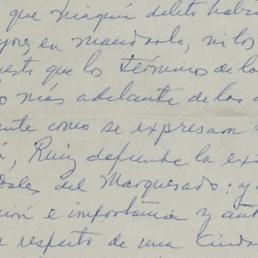 que ningún delito habí
yores en mandarlo, ni los
uesto que los términos de la
o más adelante de las
ente como se expresaron
Ruiz defiende la ex
dales del Marquesado: y
ión e importancia y
respeto de una